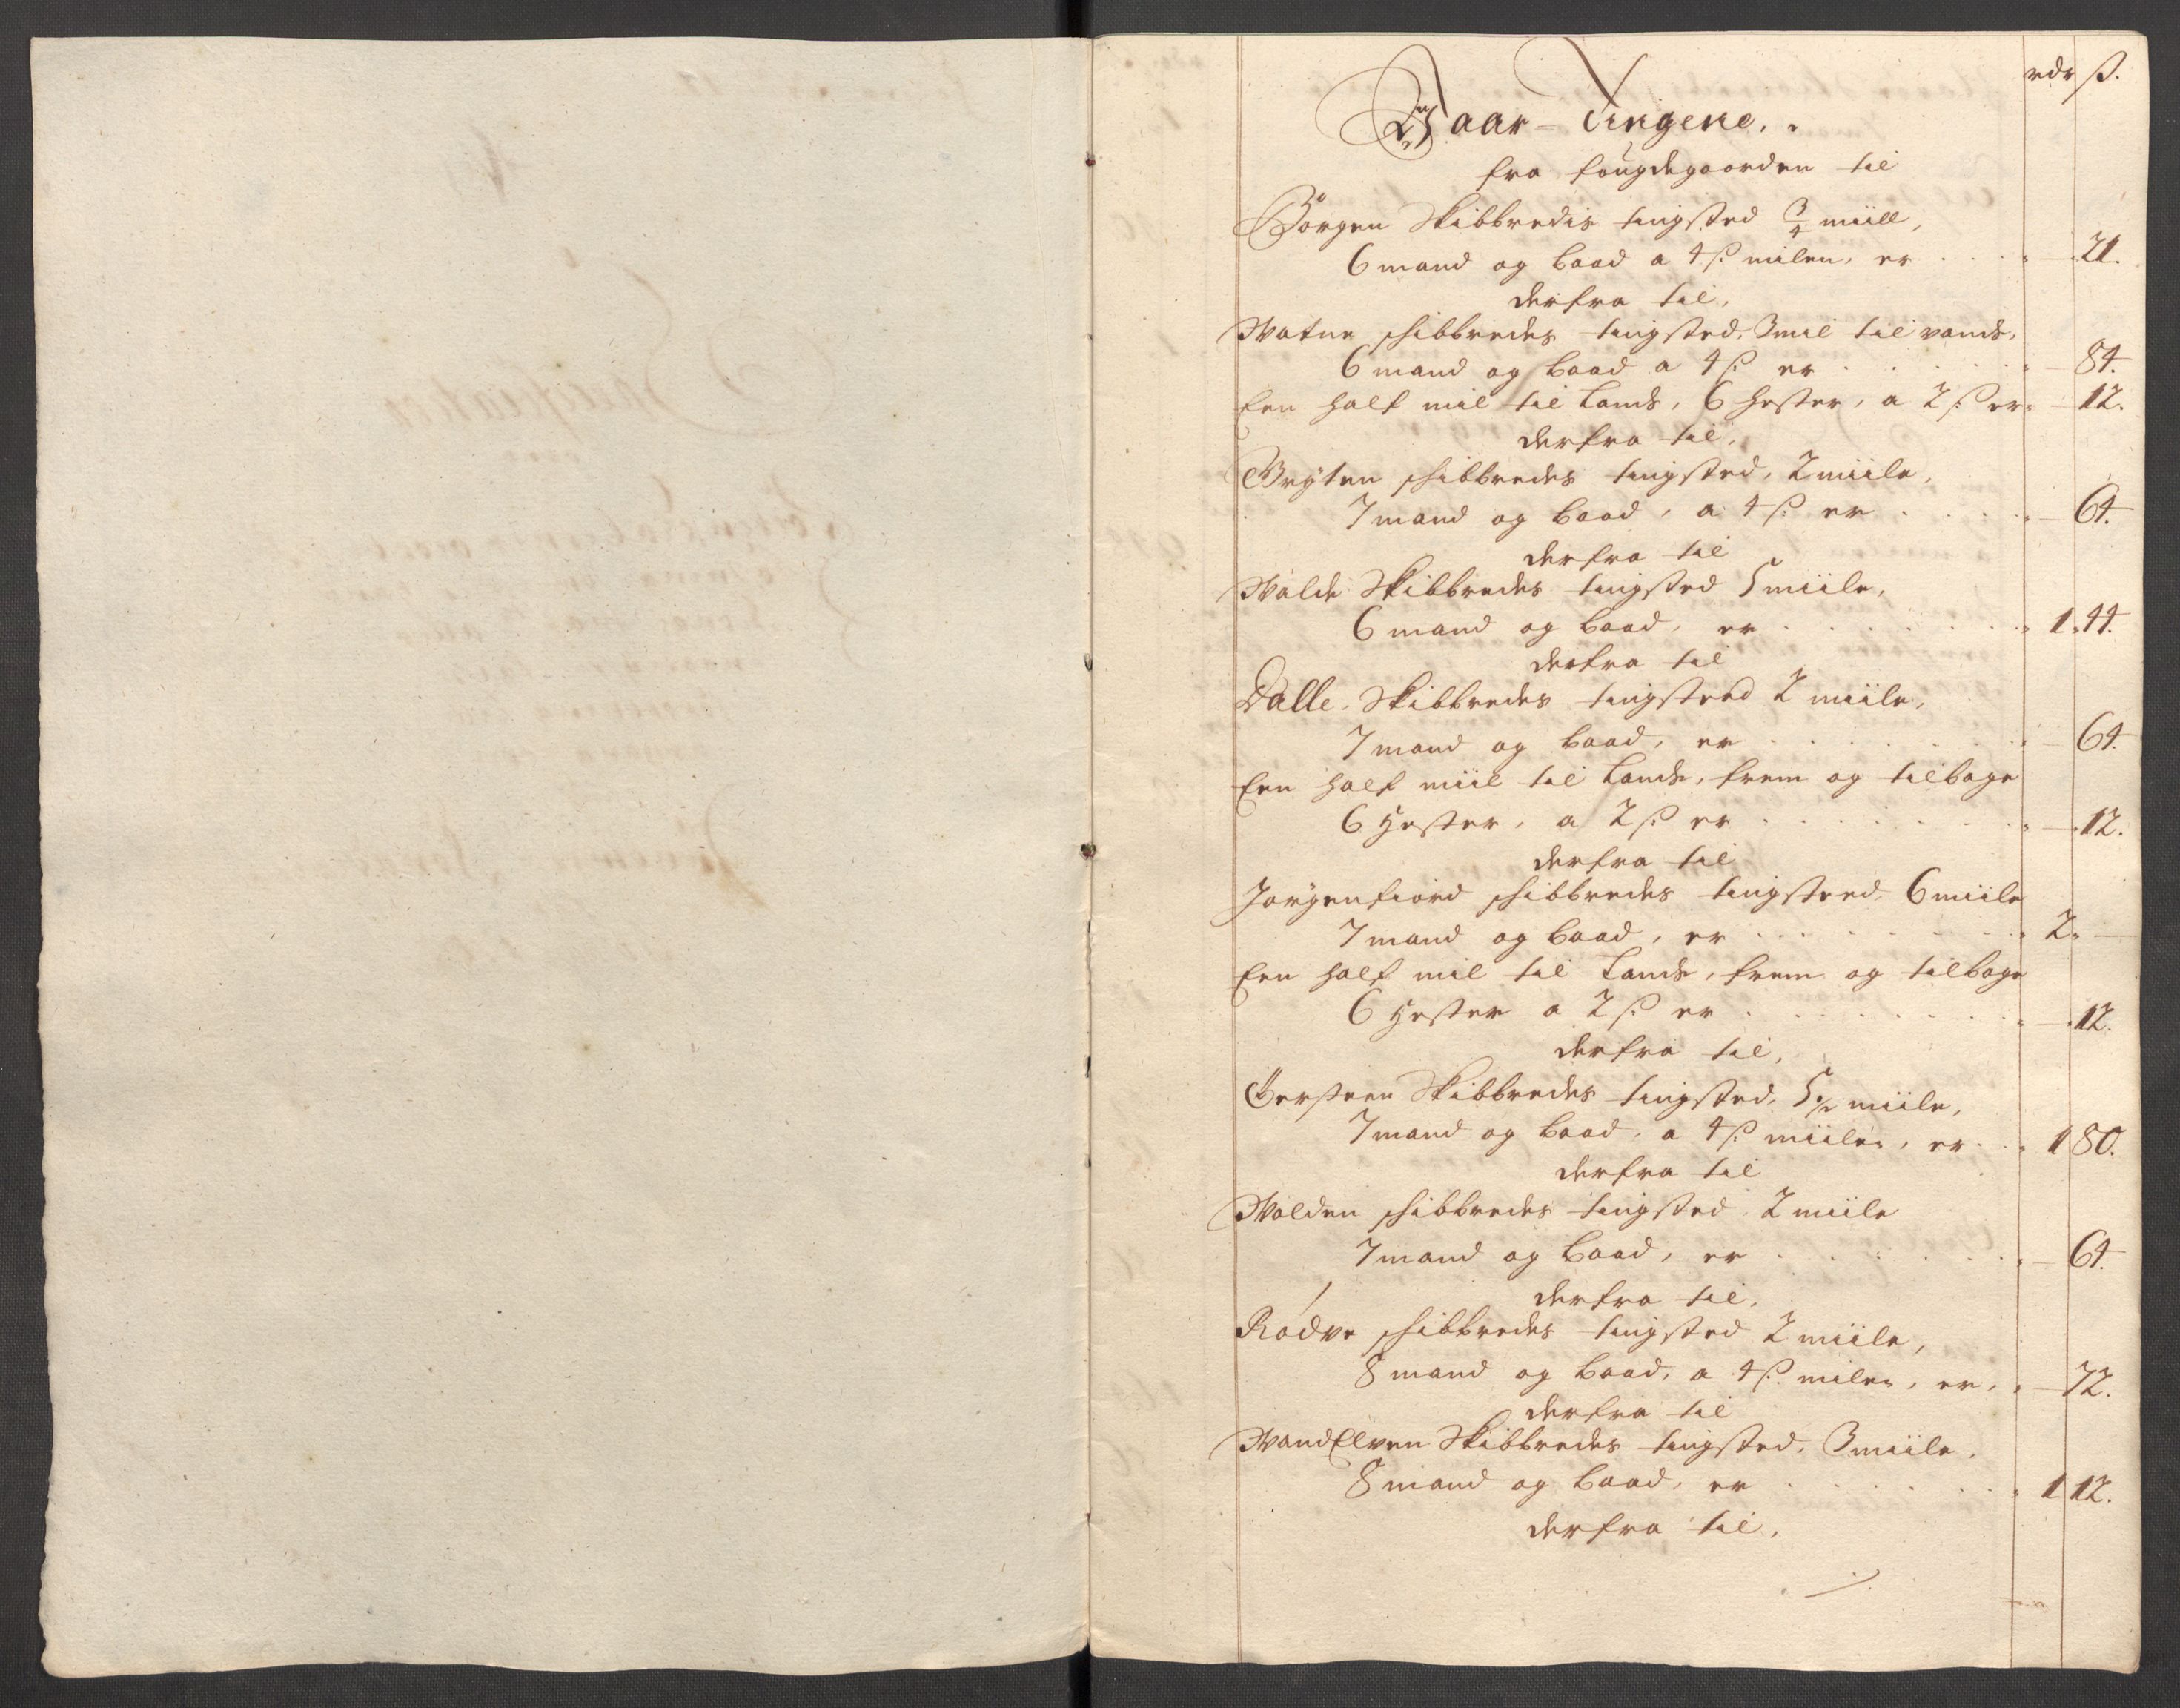 rdr ß.
Waar-Tingene.
fra fougdegaarden til
Borgen Skibbredis tingsted 3/4 miill,
6 mand og baad a 4 ß milen, er . . . 21.
derfra til,
Watne skibbredes tingsted, 3 mil til vands,
6 mand og baad a 4 ß er . . . 84.
Een half mil til Lands, 6 hester, a 2 ß er 12.
derfra til,
Gryten skibbredes tingsted, 2 miile,
7 mand og baad, a 4 ß er . . . 64.
derfra til
Walde Skibbredes tingsted 5 miile,
6 mand og baad, er . . . 1. 44.
derfra til
Dalle Skibbredes tingsteed 2 miile,
7 mand og baad, er . . . 64.
Een half miil til Lands, frem og tilbage
6 Hester, a 2 ß er . . . 12.
derfra til
Jørgenfiord skibbredes tingsteed, 6 miile
7 mand og baad, er . . . 2. —
Een half mil til Lands, frem og tilbage
6 Hester a 2 ß er . . . 12.
derfra til,
Skibbredes tingsted, 5 1/2 miile,
7 mand og baad, a 4 ß miilen, er . . 1 80.
derfra til
Wolden skibbredes tingsted 2 miile
7 mand og baad, er . . . 64.
derfra til,
Rødve skibbredes tingsted 2 miile,
8 mand og baad, a 4 ß milen, er, 72.
derfra til
WandElven Skibbredes tingsted, 3 miile,
8 mand og baad, er . . . 1 12.
derfra til,